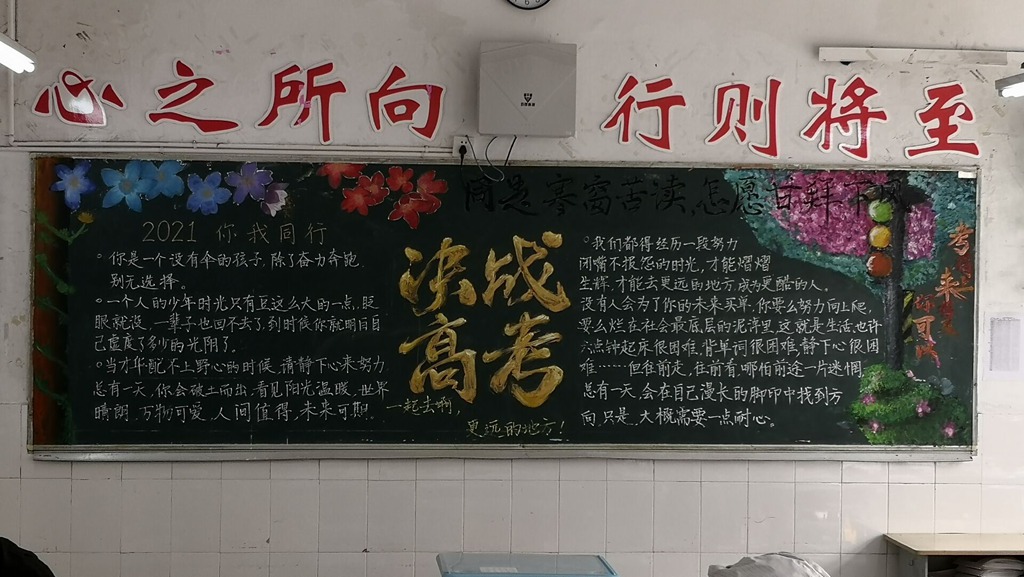 心之所向 行则将至
同是寒窗苦读,怎愿甘拜下风
2021 你我同行
。你是一个没有伞的孩子,除了奋力奔跑,
别无选择。
。一个人的少年时光只有豆这么大的一点,眨
眼就没,一辈子也回不去了,到时候你就明白自
己虚度了多少的光阴了。
。当才华配不上野心的时候,请静下心来努力
总有一天,你会破土而出,看见阳光温暖,世界
晴朗,万物可爱,人间值得,未来可期.
决战
高考
一起去啊,
更远的地方!
。我们都得经历一段努力
闭嘴不报怨的时光,才能熠熠
生辉,才能去更远的地方,成为更酷的人。
没有人会为了你的未来买单,你要么努力向上爬,
要么烂在社会最底层的泥泞里,这就是生活,也许
六点钟起床很困难,背单词很困难,静下心很困
难……但往前走,在前看,哪怕前途一片迷惘,
总有一天,会在自己漫长的脚印中找到方
向,只是,大概需要一点耐心。
未来
可